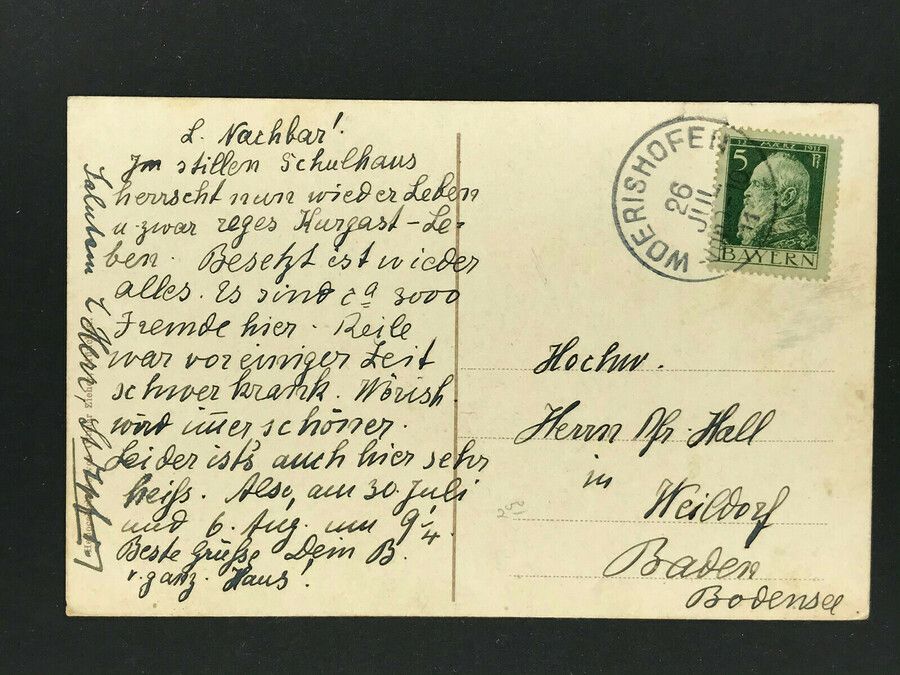 L. Nachbar!
Im stillen Schulhaus
herrscht nun wieder Leben
u. zwar reges Kurgast-Le-
ben. Besetzt ist wieder
alles. Es sind ca 3000
Fremde hier. Reile
war vor einiger Zeit
schwer krank. Wörish.
wird immer schöner.
Leider ist's auch hier sehr
heiß. Also, am 30. Juli
und 6. Aug. um 9 1/4.
Beste Grüße Dein B.
v. ganz. Haus!
Salutem
WOERISHOFEN
26
JUL
11
12 MÄRZ 1911
5 Pf
BAYERN
Hochw.
Herrn Pfr. Hall
in
Weildorf
Baden
Bodensee